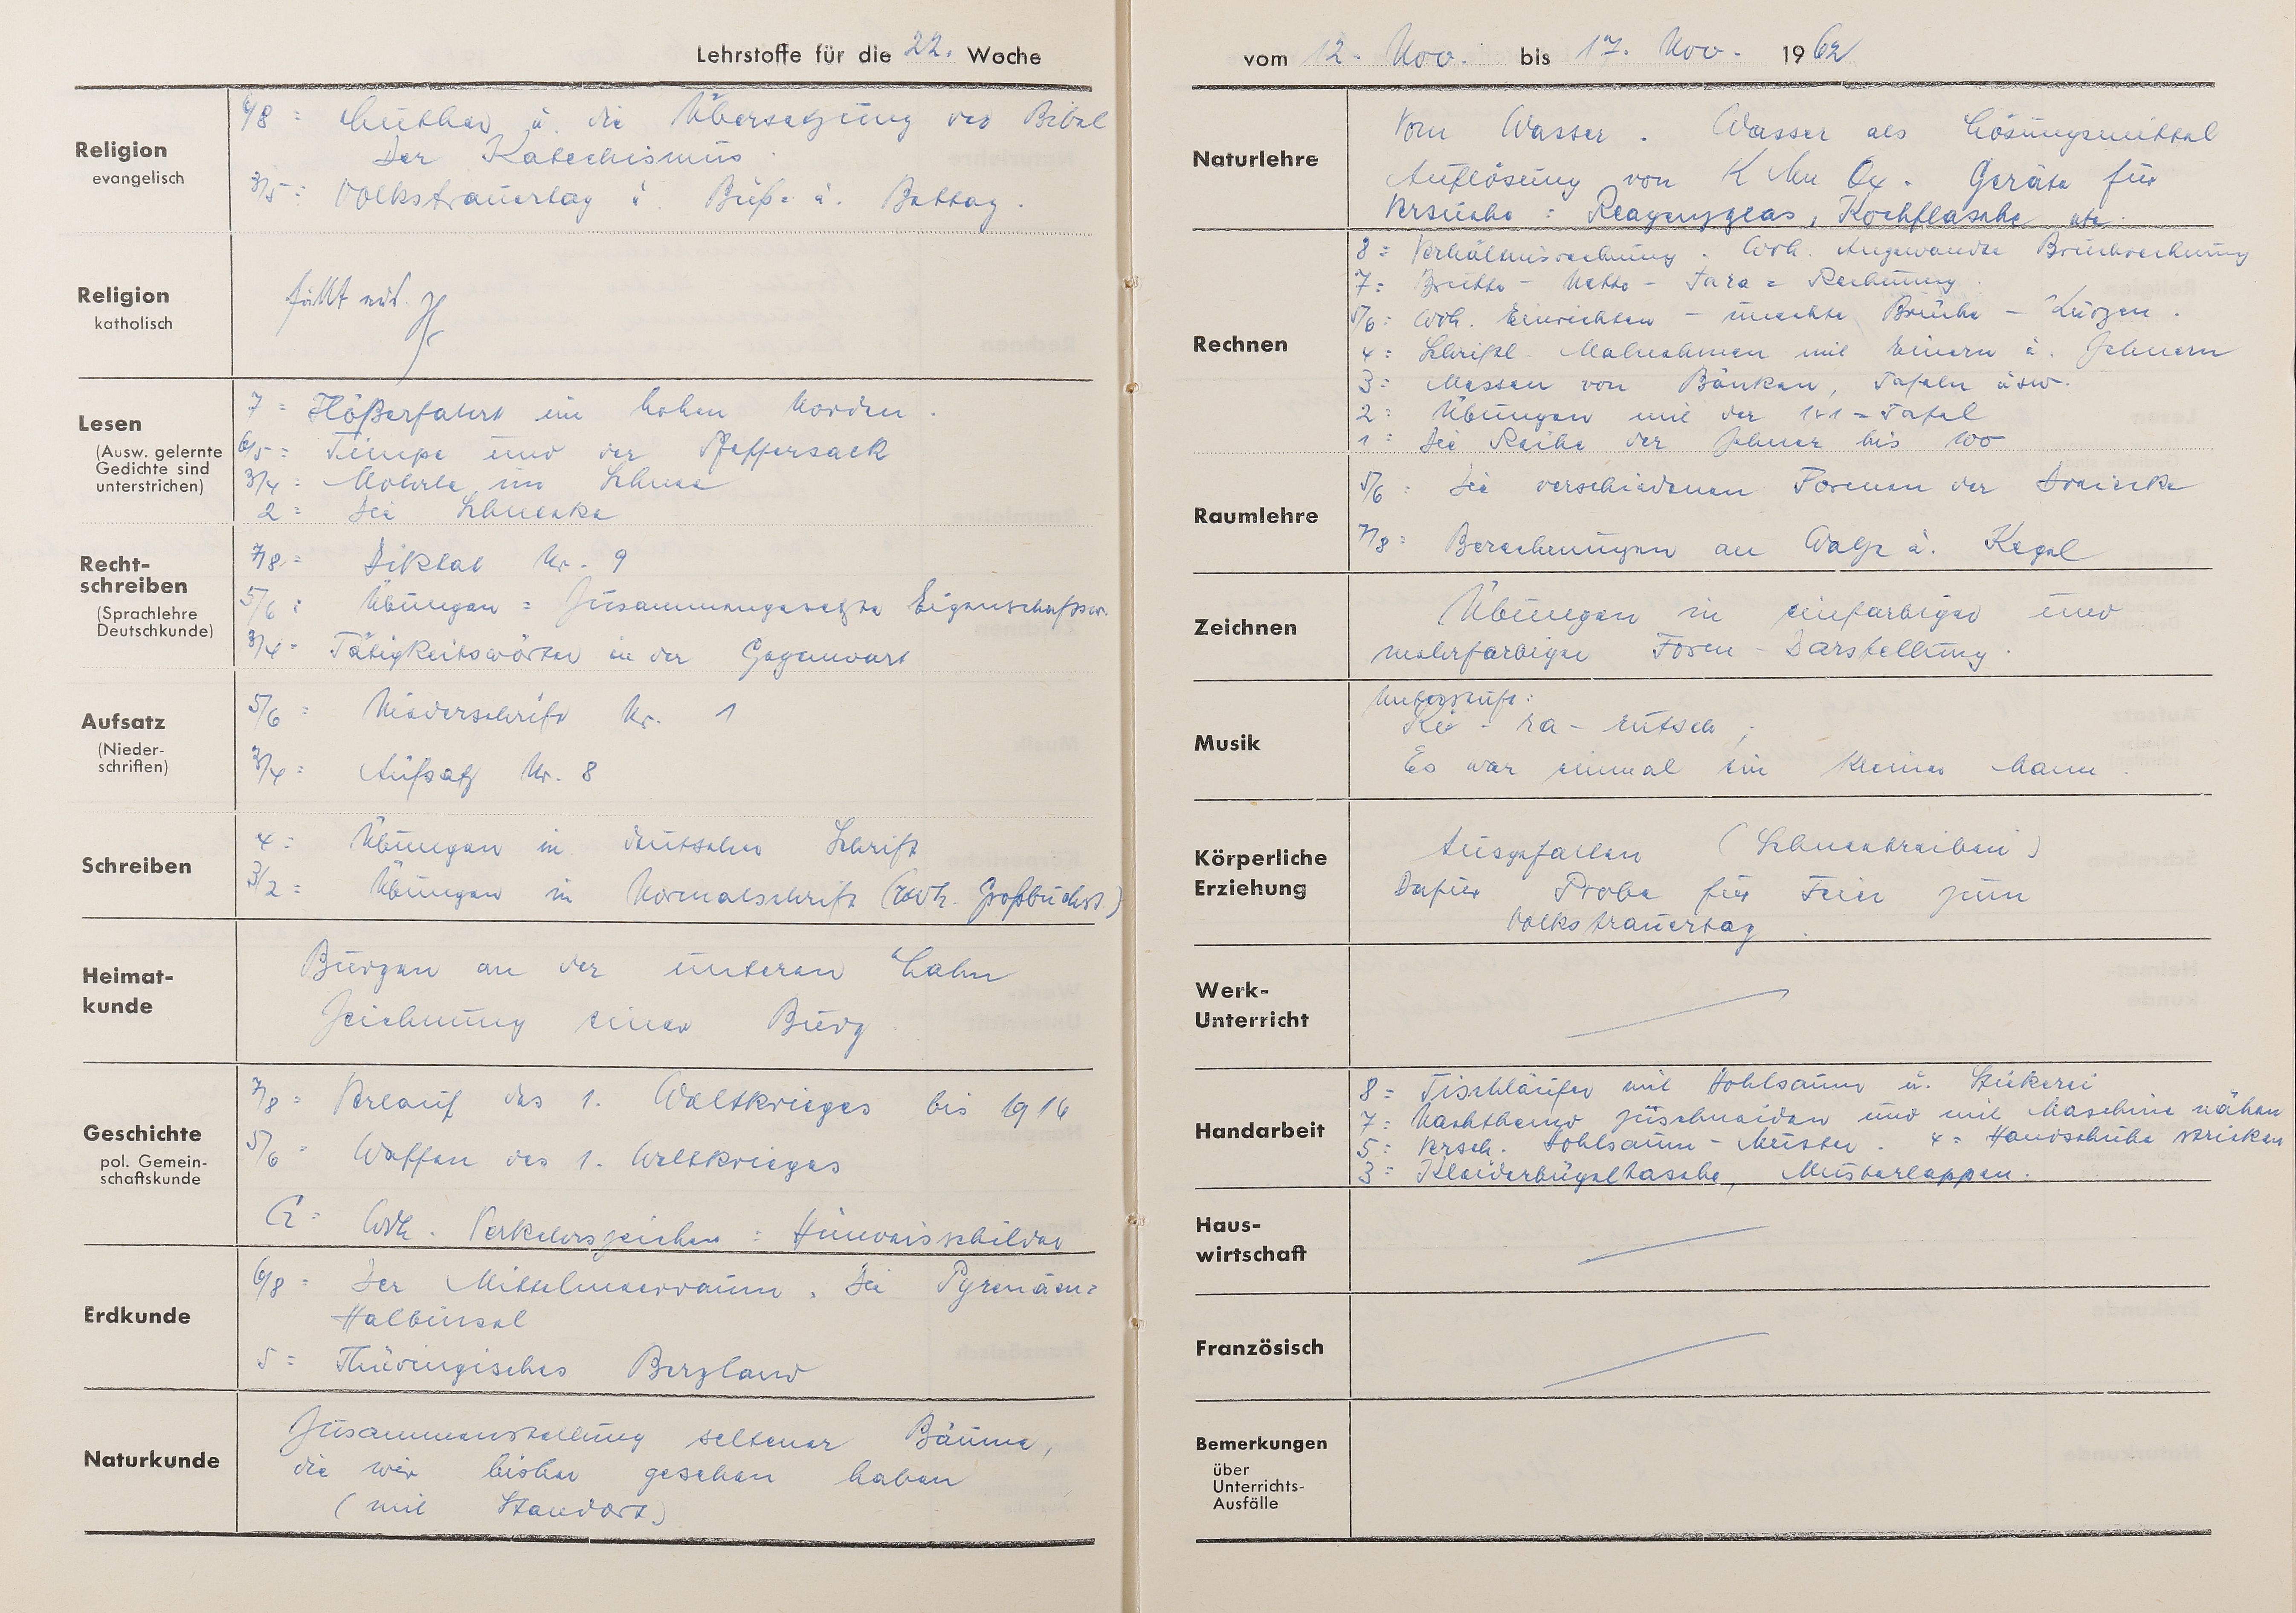 Lehrstoffe für die 22. Woche
Religion
evangelisch
6/8 = Luther u. die Übersetzung der Bibel
Der Katechismus.
3/5 = Volkstrauertag u. Buß- u. Bettag.
Religion
katholisch
fällt aus.
Lesen
(Ausw. gelernte
Gedichte sind
unterstrichen)
7 = Flößerfahrt im hohen Norden.
6/5 = Timpe und der Pfeffersack
3/4 = Mohrle im Schnee
2 = Die Schnecke
Recht-
schreiben
(Sprachlehre
Deutschkunde)
7/8 = Diktat Nr. 9
5/6 : Übungen = Zusammengesetzte Eigenschaftsw.
3/4 = Tätigkeitswörter in der Gegenwart
Aufsatz
(Nieder-
schriften)
5/6 = Niederschrift Nr. 1
3/4 = Aufsatz Nr. 8
Schreiben
4 = Übungen in deutscher Schrift
3/2 = Übungen in Normalschrift (Wdh. Großbuchst.)
Heimat-
kunde
Burgen an der unteren Lahn
Zeichnung einer Burg
Geschichte
pol. Gemein-
schaftskunde
7/8 = Verlauf des 1. Weltkrieges bis 1916
5/6 = Waffen des 1. Weltkrieges
Wdh. Verkehrszeichen = Hinweisschilder
Erdkunde
6/8 = Der Mittelmeerraum. Die Pyrenäen=
Halbinsel
5 = Thüringisches Bergland
Naturkunde
Zusammenstellung seltener Bäume,
die wir bisher gesehen haben
(mit Standort)
vom 12. Nov. bis 17. Nov. 1962
Naturlehre
Vom Wasser. Wasser als Lösungsmittel
Auflösung von K Mn O4. Geräte für
Versuche = Reagenzglas, Kochflasche etc.
Rechnen
8 = Verhältnisrechnung. Wdh. Angewandte Bruchrechnung
7 = Brutto - Netto - Tara = Rechnung.
5/6 = Wdh. Einrichten - unechte Brüche - Kürzen.
4 = Schriftl. Malnehmen mit Einern u. Zehnern
3 = Messen von Bänken, Tafeln usw.
2 = Übungen mit der 1x1 = Tafel
1 = Die Reihe der Zehner bis 100
Raumlehre
5/6 = Die verschiedenen Formen der Dreiecke
7/8 = Berechnungen an Walze u. Kegel
Zeichnen
Übungen in einfarbiger und
mehrfarbiger Form-Darstellung.
Musik
Unterstufe:
Ri - ra - rutsch;
Es war einmal ein kleiner Mann.
Körperliche
Erziehung
Ausgefallen (Schneetreiben)
Dafür Probe für Feier zum
Volkstrauertag.
Werk-
Unterricht
Handarbeit
8 = Tischläufer mit Hohlsaum u. Stickerei
7 = Nachthemd zuschneiden und mit Maschine nähen
5 = Versch. Hohlsaum-Muster. 4 = Handschuhe stricken
3 = Kleiderbügeltasche, Musterlappen.
Haus-
wirtschaft
Französisch
Bemerkungen
über
Unterrichts-
Ausfälle